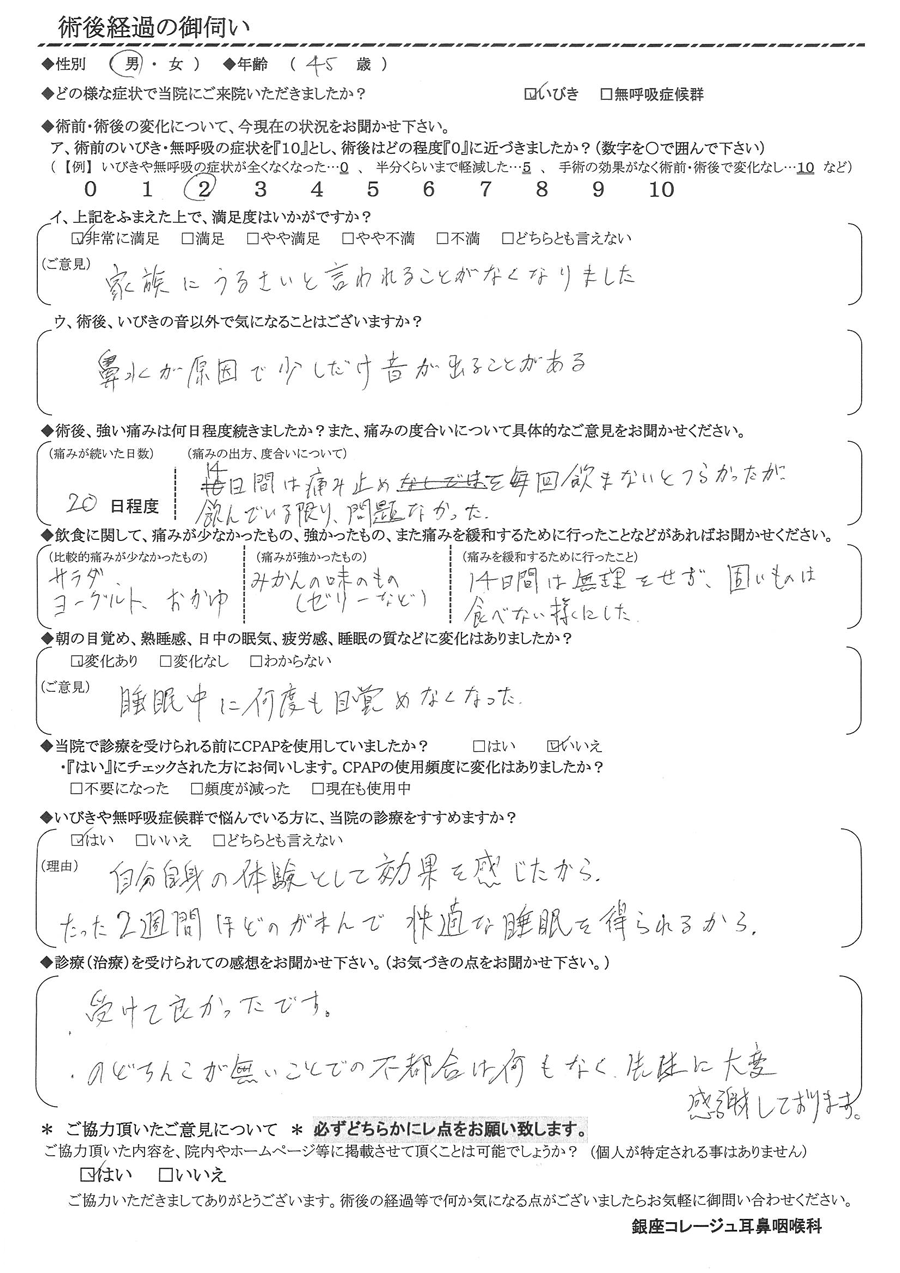 術後経過の御伺い
◆性別 ( 男 ・ 女 ) ◆年齢 ( 45 歳 )
◆どの様な症状で当院にご来院いただきましたか? ☑いびき □無呼吸症候群
◆術前・術後の変化について、今現在の状況をお聞かせ下さい。
ア、術前のいびき・無呼吸の症状を『10』とし、術後はどの程度『0』に近づきましたか?(数字を〇で囲んで下さい)
(【例】いびきや無呼吸の症状が全くなくなった…0 、 半分くらいまで軽減した…5 、 手術の効果がなく術前・術後で変化なし…10 など)
0 1 2 3 4 5 6 7 8 9 10
イ、上記をふまえた上で、満足度はいかがですか?
☑非常に満足 □満足 □やや満足 □やや不満 □不満 □どちらとも言えない
(ご意見)
家族にうるさいと言われることがなくなりました
ウ、術後、いびきの音以外で気になることはございますか?
鼻水が原因で少しだけ音が出ることがある
◆術後、強い痛みは何日程度続きましたか?また、痛みの度合いについて具体的なご意見をお聞かせください。
(痛みが続いた日数) (痛みの出方、度合いについて)
14日間は痛み止めなしではを毎回飲まないとつらかったが
20 日程度 飲んでいる限り、問題なかった.
◆飲食に関して、痛みが少なかったもの、強かったもの、また痛みを緩和するために行ったことなどがあればお聞かせください。
(比較的痛みが少なかったもの) (痛みが強かったもの) (痛みを緩和するために行ったこと)
サラダ、 みかんの味のもの 14日間は無理をせず、固いものは
ヨーグルト、おかゆ (ゼリーなど) 食べない様にした.
◆朝の目覚め、熟睡感、日中の眠気、疲労感、睡眠の質などに変化はありましたか?
☑変化あり □変化なし □わからない
(ご意見)
睡眠中に何度も目覚めなくなった.
◆当院で診療を受けられる前にCPAPを使用していましたか? □はい ☑いいえ
・『はい』にチェックされた方にお伺いします。CPAPの使用頻度に変化はありましたか?
□不要になった □頻度が減った □現在も使用中
◆いびきや無呼吸症候群で悩んでいる方に、当院の診療をすすめますか?
☑はい □いいえ □どちらとも言えない
(理由)
自分自身の体験として効果を感じたから.
たった2週間ほどのがまんで 快適な睡眠を得られるから.
◆診療(治療)を受けられての感想をお聞かせ下さい。(お気づきの点をお聞かせ下さい。)
・受けて良かったです。
・のどちんこが無いことでの不都合は何もなく、先生に大変
感謝しております。
* ご協力頂いたご意見について * 必ずどちらかにレ点をお願い致します。
ご協力頂いた内容を、院内やホームページ等に掲載させて頂くことは可能でしょうか? (個人が特定される事はありません)
☑はい □いいえ
ご協力いただきましてありがとうございます。術後の経過等で何か気になる点がございましたらお気軽に御問い合わせください。
銀座コレージュ耳鼻咽喉科